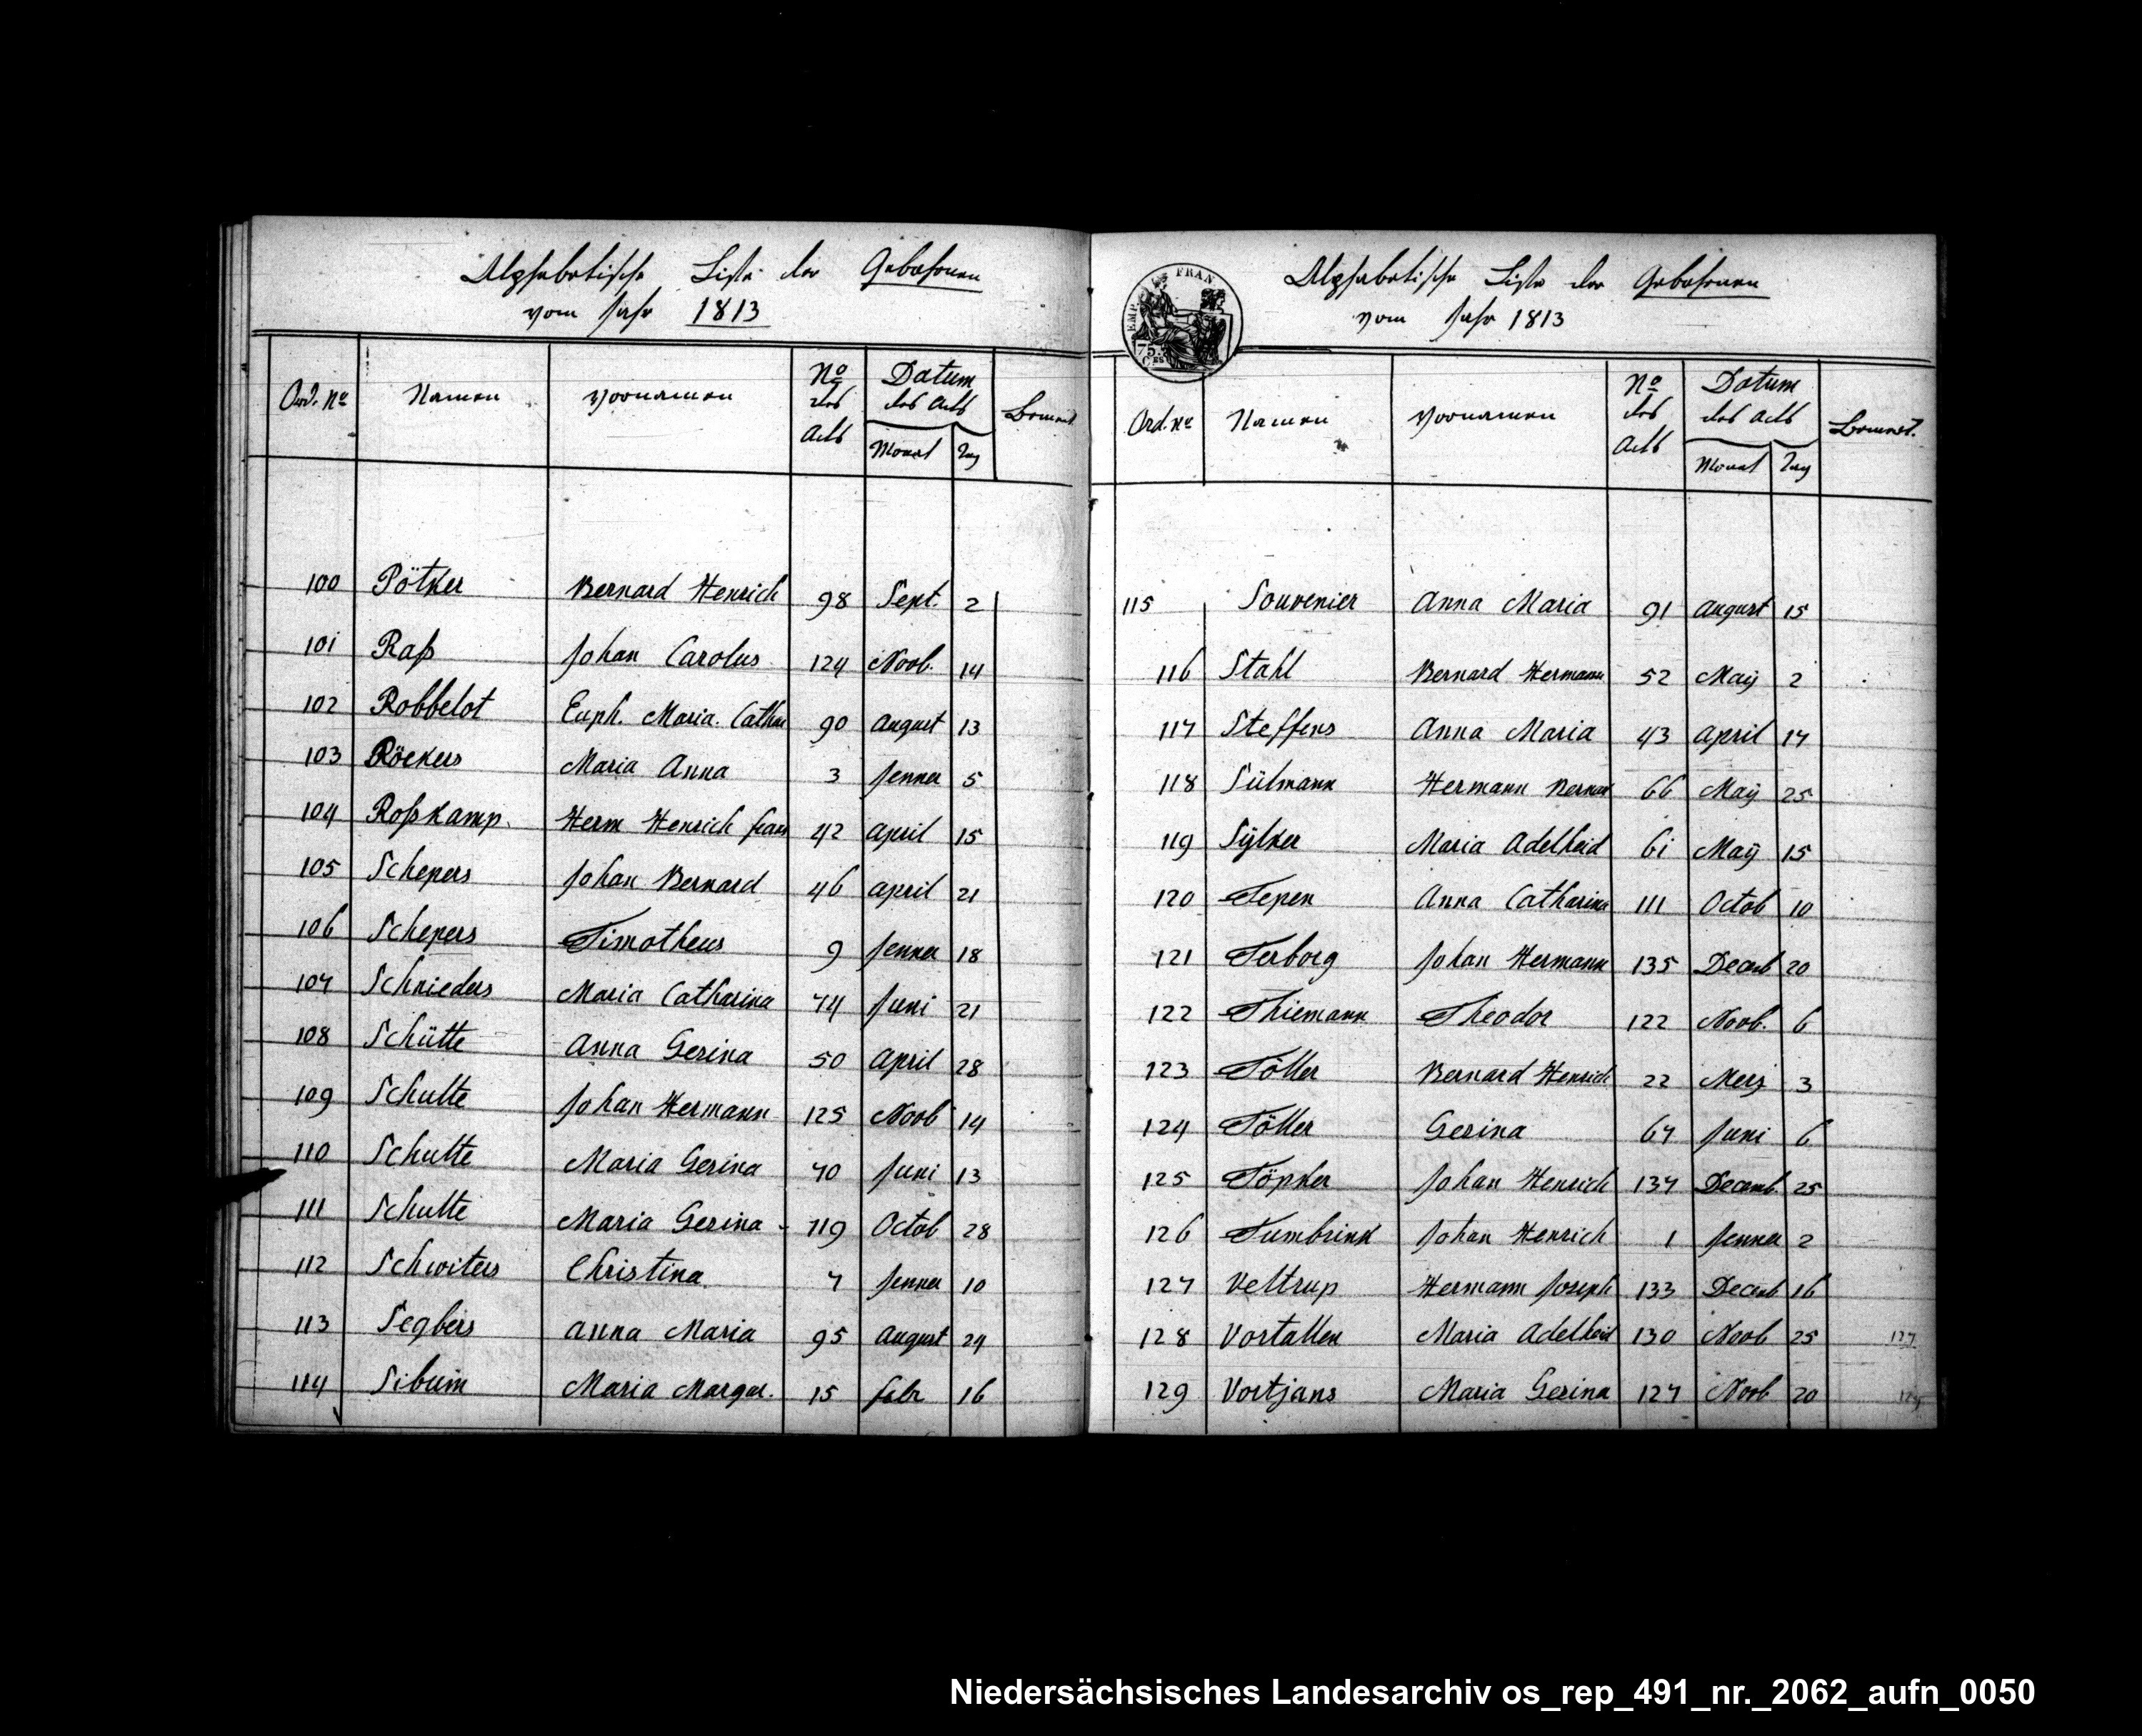 Alphabetische Liste der Gebohrnen
vom Jahr 1813
Ord. No Namen Vornamen No des Acts Datum des Acts Monat Tag Bemerk.
100 Pötker Bernard Henrich 98 Sept. 2
101 Raß Johan Carolus 124 Novb. 14
102 Robbelot Euph. Maria. Cathar 90 August 13
103 Röckers Maria Anna 3 Jenner 5
104 Roßkamp. Herm Henrich Frans 42 April 15
105 Schepers Johan Bernard 46 April 21
106 Schepers Timotheus 9 Jenner 18
107 Schnieders Maria Catharina 74 Juni 21
108 Schütte Anna Gerina 50 April 28
109 Schulte Johan Hermann 125 Novb 14
110 Schulte Maria Gerina 70 Juni 13
111 Schulte Maria Gerina 119 Octob 28
112 Schwiters Christina 7 Jenner 10
113 Segbers Anna Maria 95 August 29
114 Sibum Maria Margar. 15 Febr 16
FRAN
EMP
75.
CES
Alphabetische Liste der Gebohrnen
vom Jahr 1813
Ord. No Namen Vornamen No des Acts Datum des Acts Monat Tag Bemerk.
115 Souvenier Anna Maria 91 August 15
116 Stahl Bernard Hermann 52 Maÿ 2
117 Steffens Anna Maria 43 April 17
118 Sülmann Hermann Bernar 66 Maÿ 25
119 Sÿlker Maria Adelheid 61 Maÿ 15
120 Tepen Anna Catharina 111 Octob 10
121 Terborg Johan Hermann 135 Decemb 20
122 Thiemann Theodor 122 Novb. 6
123 Töller Bernard Henrich 22 Merz 3
124 Töller Gerina 67 Juni 6
125 Töpker Johan Henrich 137 Decemb. 25
126 Tumbrink Johan Henrich 1 Jenner 2
127 Veltrup Hermann Joseph 133 Decemb 16
128 Vortallen Maria Adelheid 130 Novb 25
129 Vortjans Maria Gerina 127 Novb 20
Niedersächsisches Landesarchiv os_rep_491_nr._2062_aufn_0050